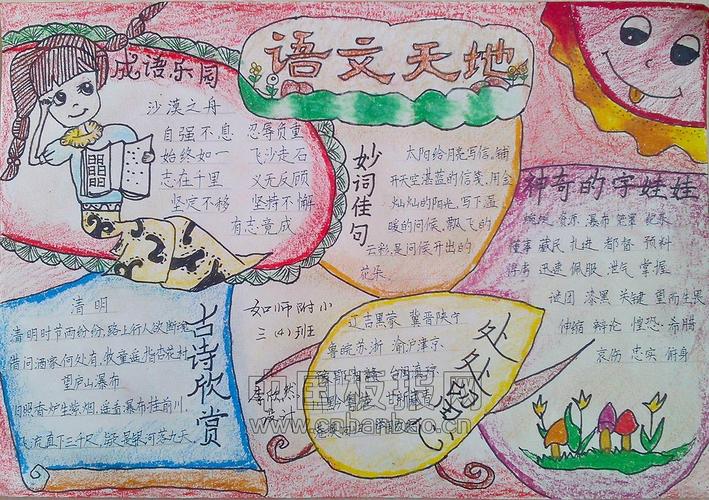 语文天地
成语乐园
沙漠之舟
自强不息 忍辱负重
始终如一 飞沙走石
志在千里 义无反顾
坚定不移 坚持不懈
有志竟成
妙词佳句
太阳给月亮写信。铺
开天空湛蓝的信笺,用金
灿灿的阳光,写下温
暖的问候。飘飞的
云彩,是问候开出的
花朵
神奇的字娃娃
瀑布 笼罩
董事 藏民 扎进 都督 预料
迅速 佩服 泄气 掌握
谜团 漆黑 关键 望而生畏
伸缩 辩论 惶恐 希腊
哀伤 忠实 俯身
古诗欣赏
清明
清明时节雨纷纷,路上行人欲断魂
借问酒家何处有,牧童遥指杏花村
望庐山瀑布
日照香炉生紫烟,遥看瀑布挂前川
飞流直下三千尺,疑是银河落九天
如师附小
三(4)班
李欣然
处处留心
辽吉黑蒙 冀晋陕宁
粤皖苏浙 渝沪津京
中国板报网